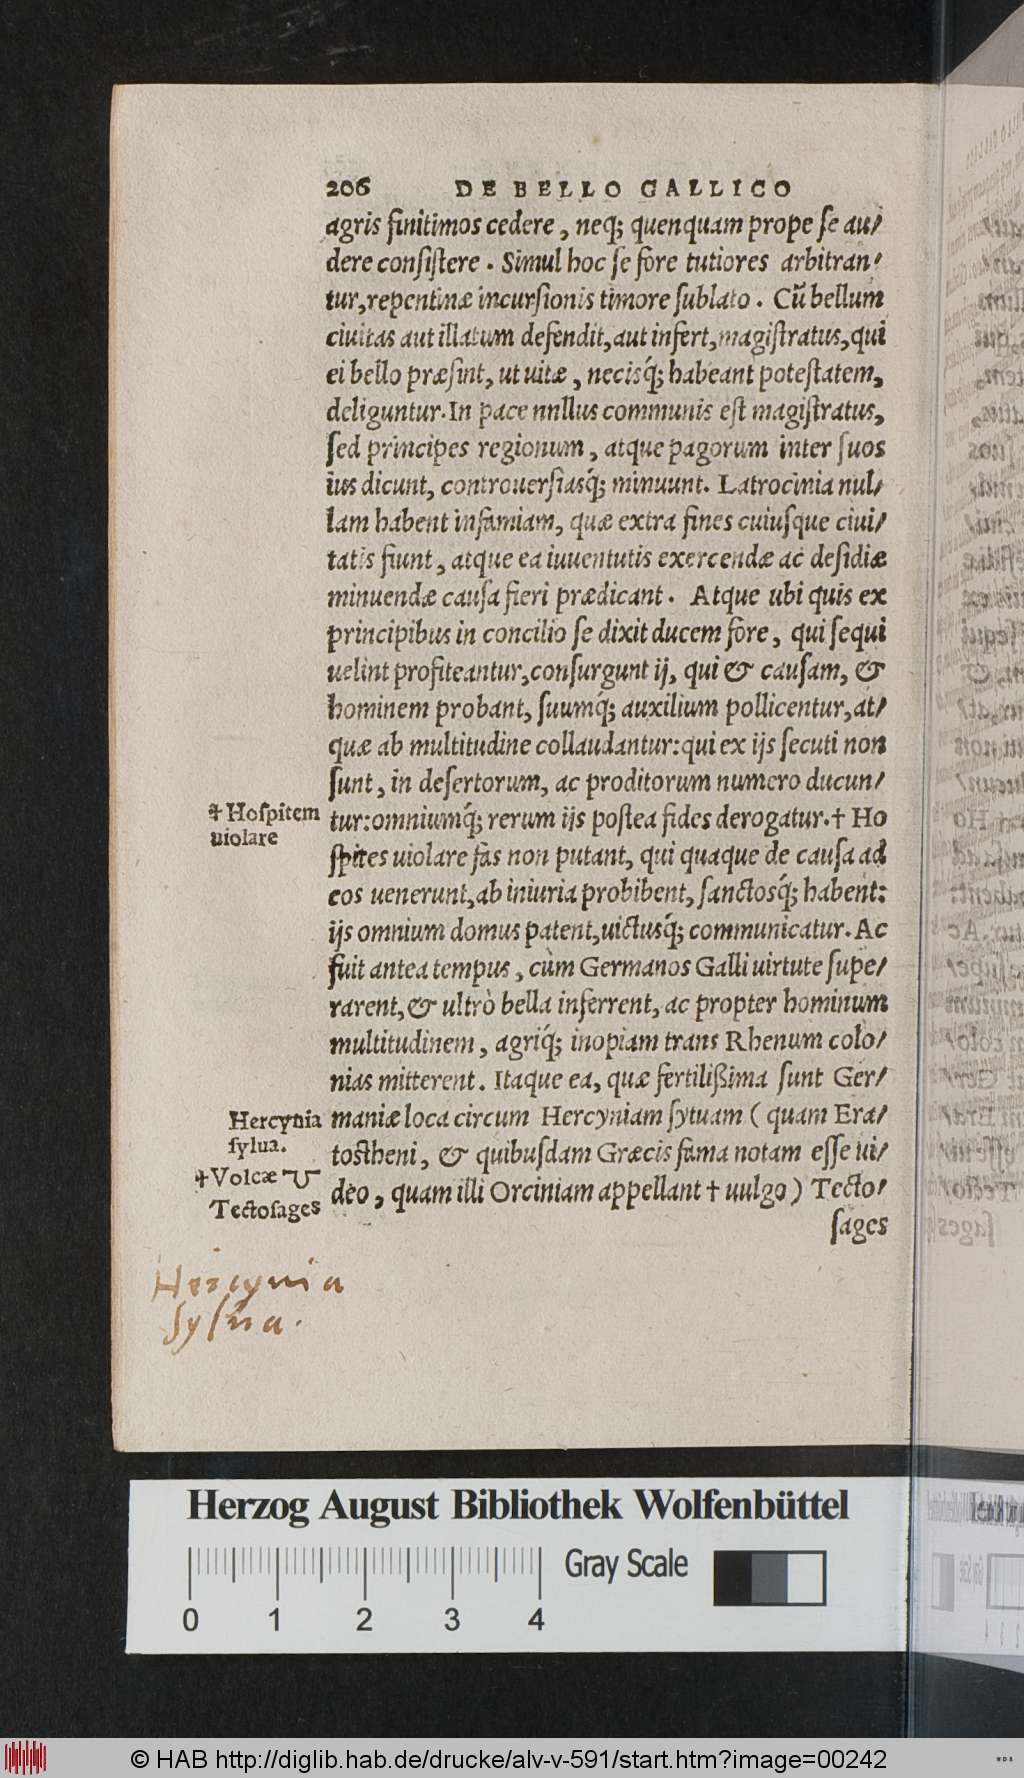 206 DE BELLO GALLICO
agris finitimos cedere, neq; quenquam prope se au/
dere consistere. Simul hoc se fore tutiores arbitran/
tur, repentinæ incursionis timore sublato. Cũ bellum
ciuitas aut illatum defendit, aut infert, magistratus, qui
ei bello præsint, ut uitæ, necisq́; habeant potestatem,
deliguntur. In pace nnllus communis est magistratus,
sed principes regionum, atque pagorum inter suos
ius dicunt, controuersiasq́; minuunt. Latrocinia nul/
lam habent infamiam, quæ extra fines cuiusque ciui/
tatis fiunt, atque ea iuuentutis exercendæ ac desidiæ
minuendæ causa fieri prædicant. Atque ubi quis ex
principibus in concilio se dixit ducem fore, qui sequi
uelint profiteantur, consurgunt ij, qui & causam, &
hominem probant, suumq́; auxilium pollicentur, at/
quæ ab multitudine collaudantur: qui ex ijs secuti non
sunt, in desertorum, ac proditorum numero ducun/
tur: omniumq́; rerum ijs postea fides derogatur. † Ho
spites uiolare fas non putant, qui quaque de causa ad
eos uenerunt, ab iniuria prohibent, sanctosq́; habent:
ijs omnium domus patent, uictusq́; communicatur. Ac
fuit antea tempus, cùm Germanos Galli uirtute supe/
rarent, & ultrò bella inferrent, ac propter hominum
multitudinem, agriq́; inopiam trans Rhenum colo/
nias mitterent. Itaque ea, quæ fertilißima sunt Ger/
maniæ loca circum Hercyniam syluam (quam Era/
tostheni, & quibusdam Græcis fama notam esse ui/
deo, quam illi Orciniam appellant † uulgo) Tecto/
sages
† Hospitem
uiolare
Hercynia
sylua.
† Volcæ
Tectosages
Hercynia
Sylua.
Herzog August Bibliothek Wolfenbüttel
Gray Scale
0 1 2 3 4
© HAB http://diglib.hab.de/drucke/alv-v-591/start.htm?image=00242